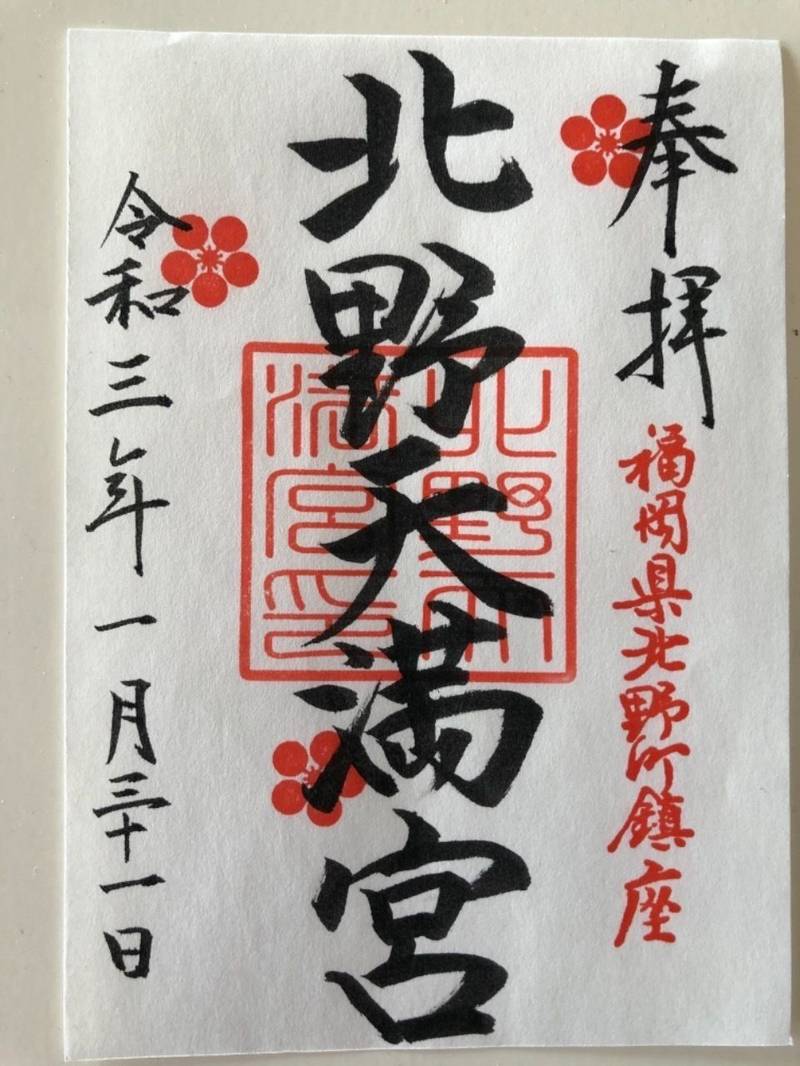 奉拝
福岡県北野町鎮座
北野天満宮
北野天
満宮印
令和三年一月三十一日